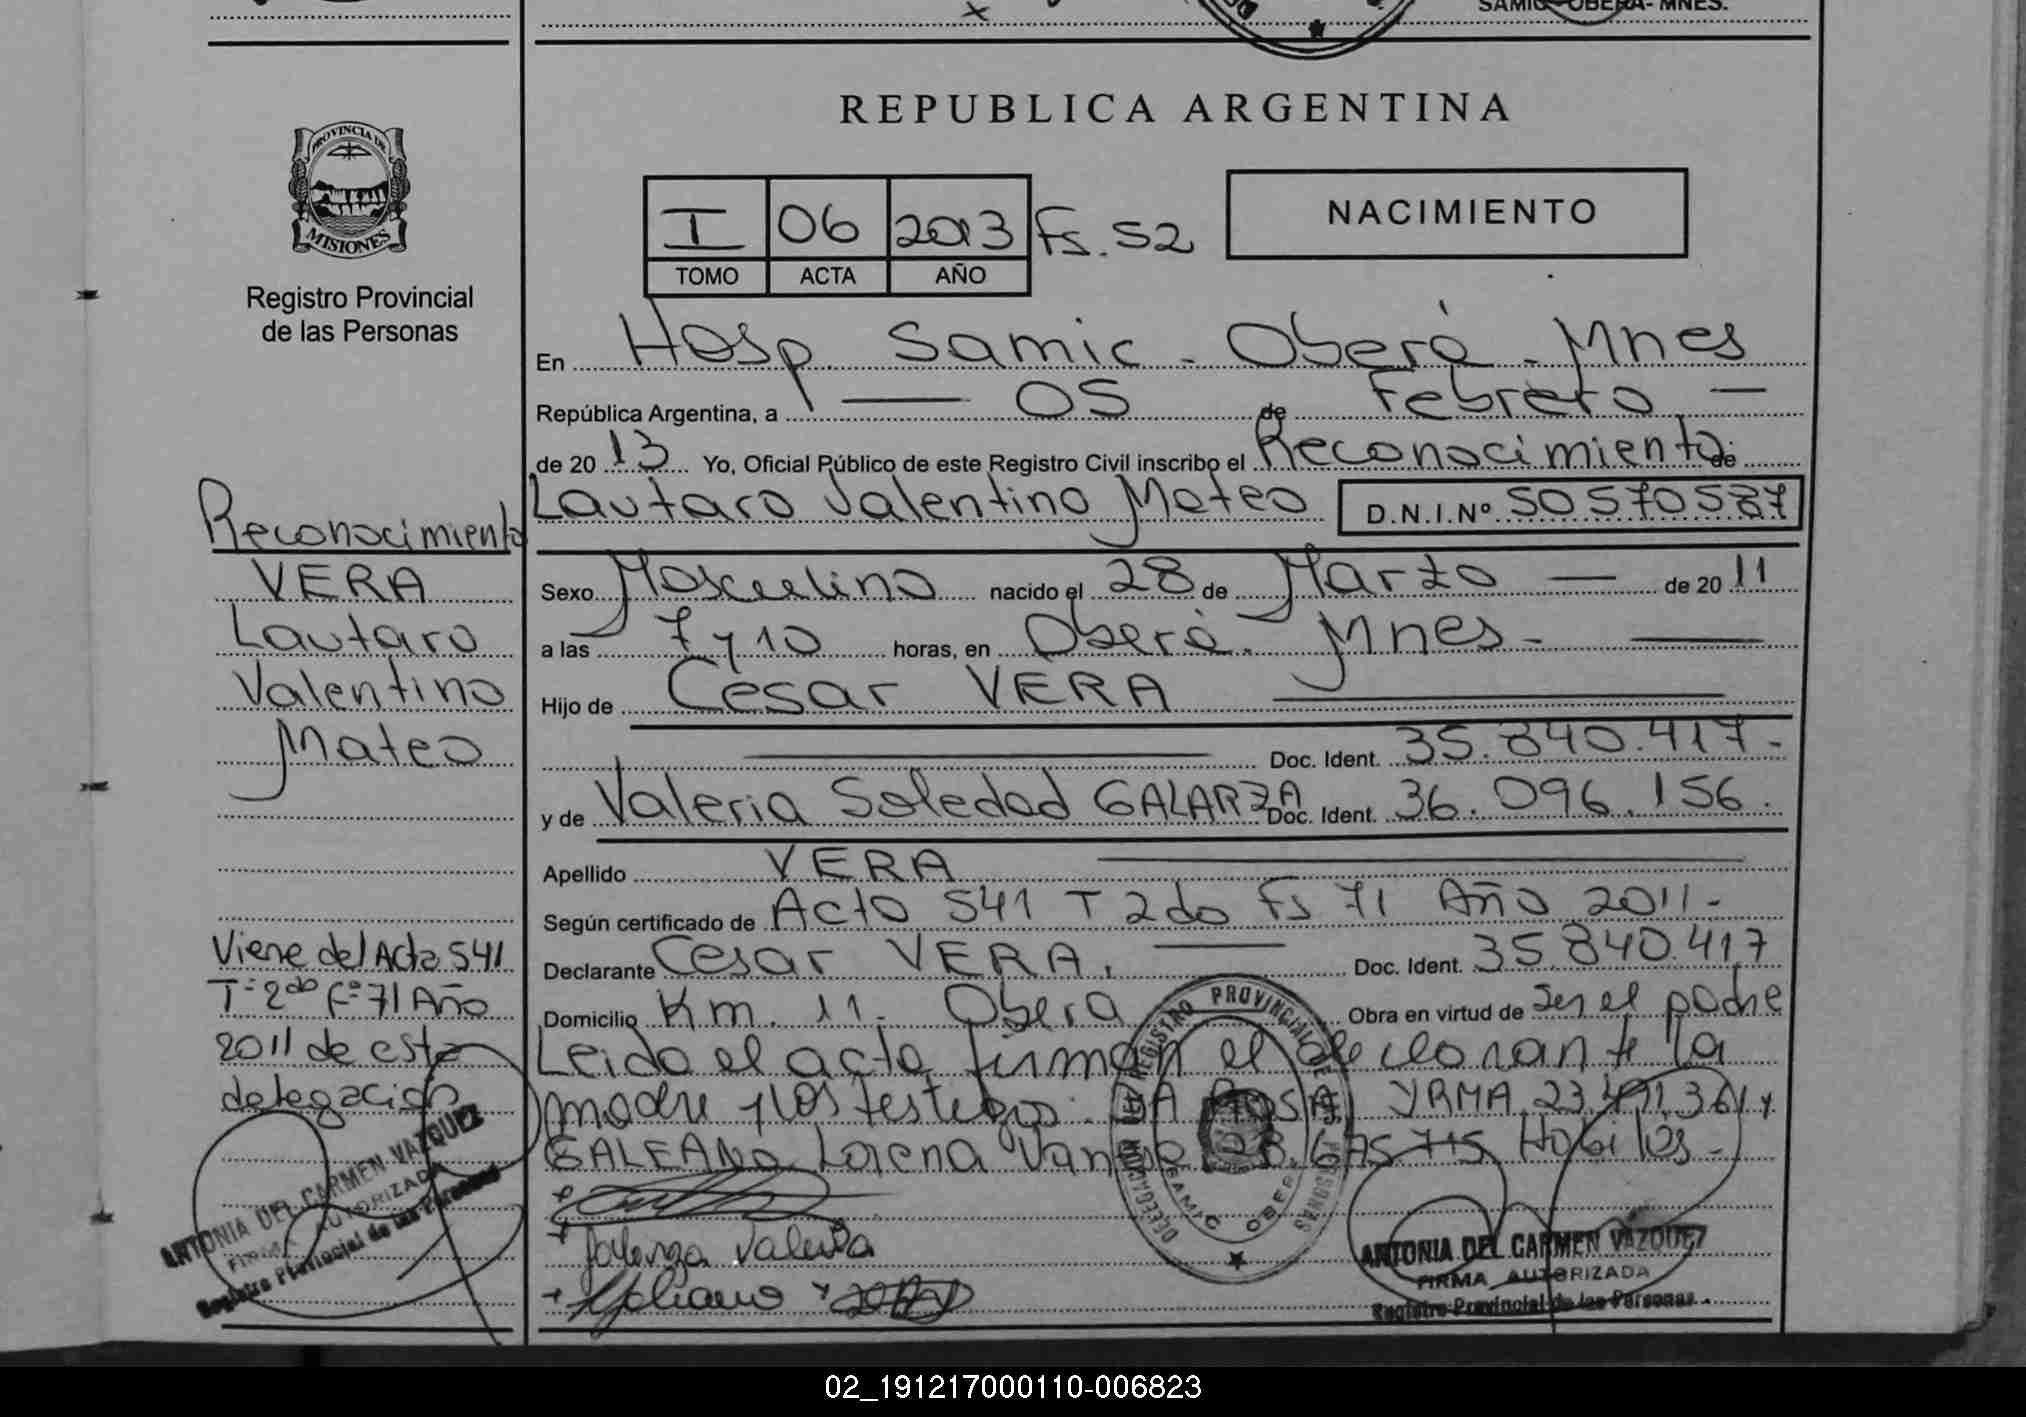 SAMIC - OBERA - MNES.
REPUBLICA ARGENTINA
PROVINCIA DE
MISIONES
Registro Provincial
de las Personas
I 06 2013 Fs. 52
TOMO ACTA AÑO
NACIMIENTO
En Hosp. Samic - Oberá - Mnes
República Argentina, a — 05 de Febrero —
de 20 13 Yo, Oficial Público de este Registro Civil inscribo el Reconocimiento de
Lautaro Valentino Mateo D.N.I.Nº 50570587
Sexo Masculino nacido el 28 de Marzo — de 20 11
a las 7 y 10 horas, en Oberá. Mnes -
Hijo de Cesar VERA
Doc. Ident. 35.840.417-
y de Valeria Soledad GALARZA Doc. Ident. 36.096.156.
Apellido VERA
Según certificado de Acta 541 T 2do Fs 71 Año 2011-
Declarante Cesar VERA. Doc. Ident. 35.840.417
Domicilio Km. 11. Obera Obra en virtud de Ser el padre
Leido el acta firman el declarante la
madre y los testigos: DA ROSA YRMA 23.491.361 y
GALEANO Lorena 28.675.715 Habiles -
Galarza Valeria
Galeano
Reconocimiento
VERA
Lautaro
Valentino
Mateo
Viene del Acta 541
T=2do Fº71 Año
2011 de esta
delegación
ANTONIA DEL CARMEN VAZQUEZ
FIRMA AUTORIZADA
Registro Provincial de las Personas
DELEGACION DEL REGISTRO PROVINCIAL DE LAS PERSONAS
SAMIC OBERA
ANTONIA DEL CARMEN VAZQUEZ
FIRMA AUTORIZADA
Registro Provincial de las Personas
02_191217000110-006823